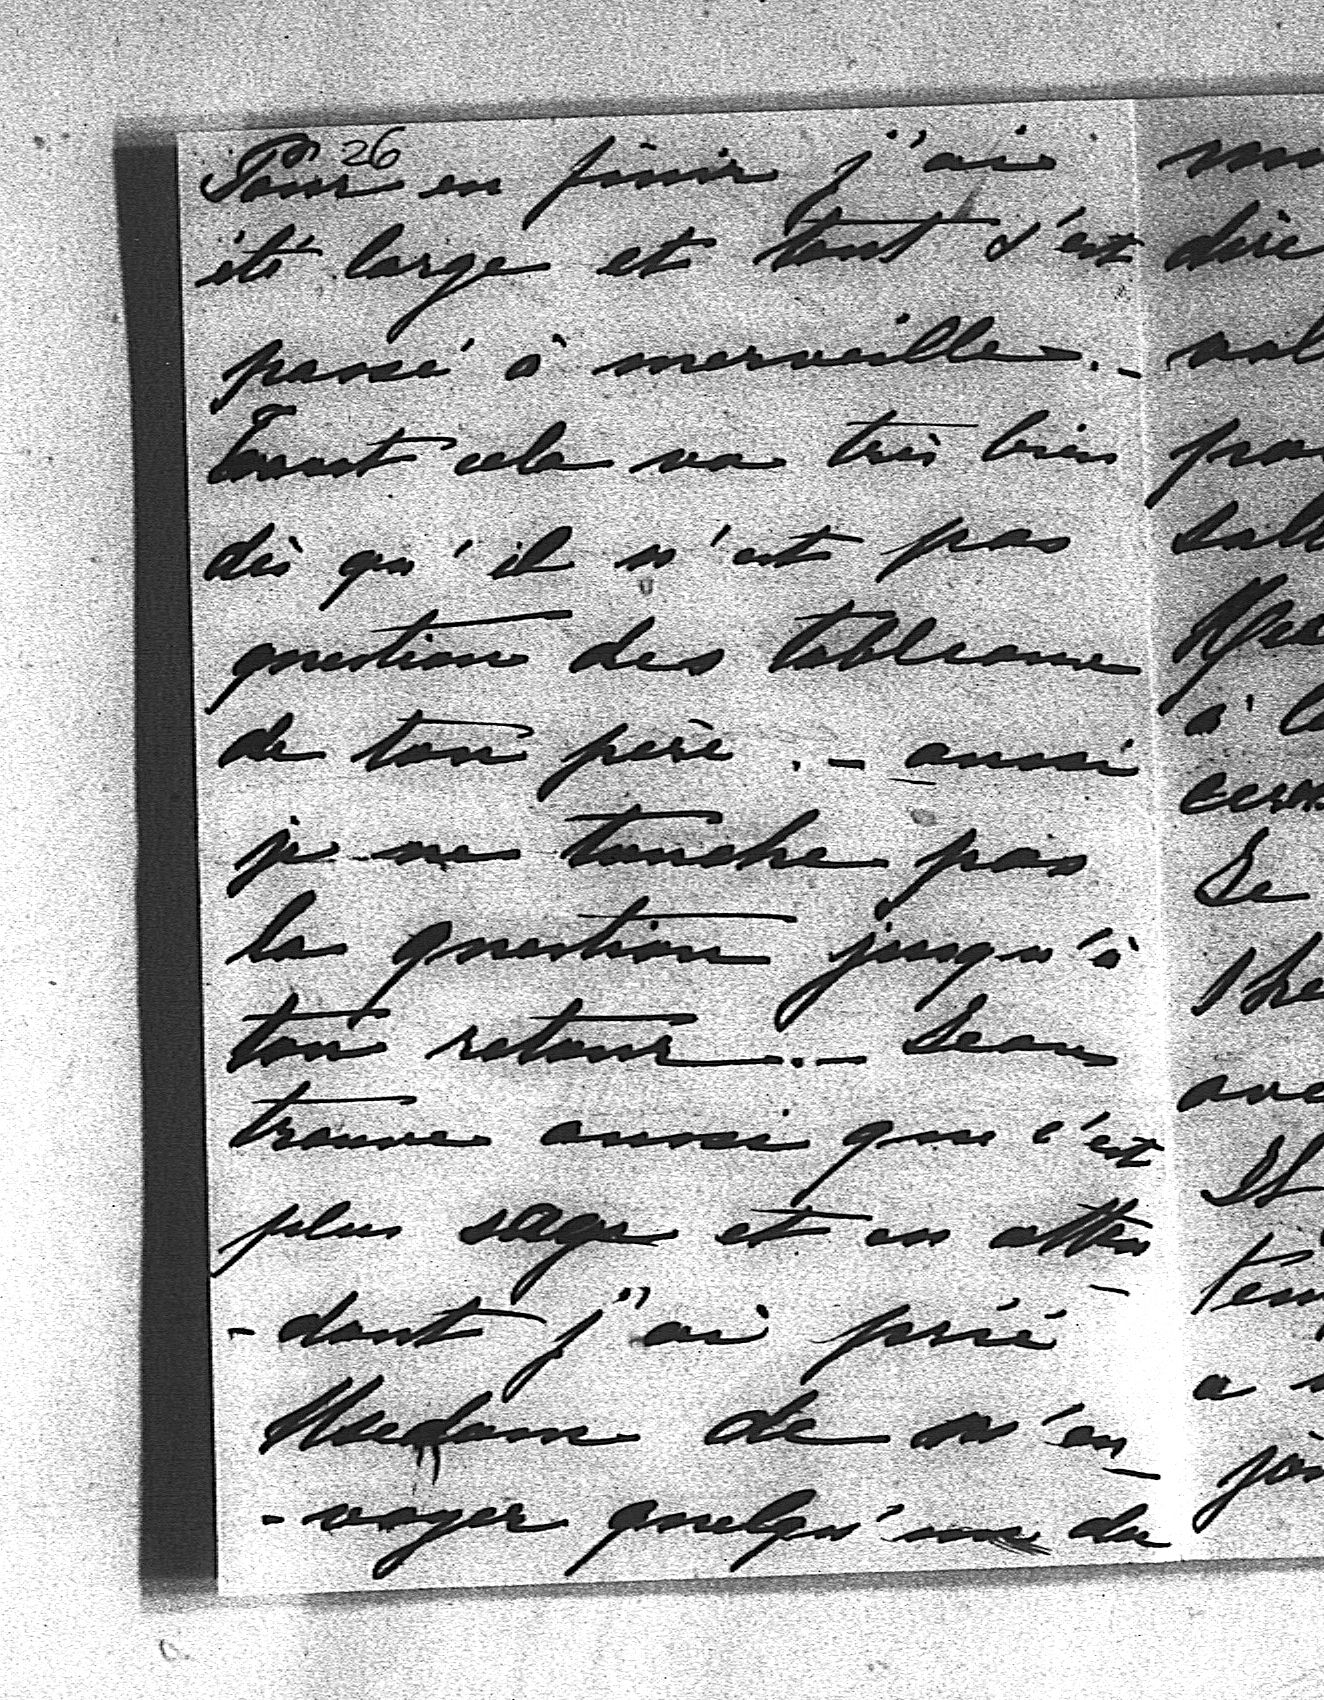 26
Pour en finir j'ai
été large et tout s'est
passé à merveille. –
Tout cela va très bien
dès qu'il n'est pas
question des tableaux
de ton père. – aussi
je ne touche pas
la question jusqu'à
ton retour. – Jean
trouve aussi que c'est
plus sage et en atten
- dant j'ai prié
de m'en –
- voyer quelqu'un du
dire
à
Le
Il
a